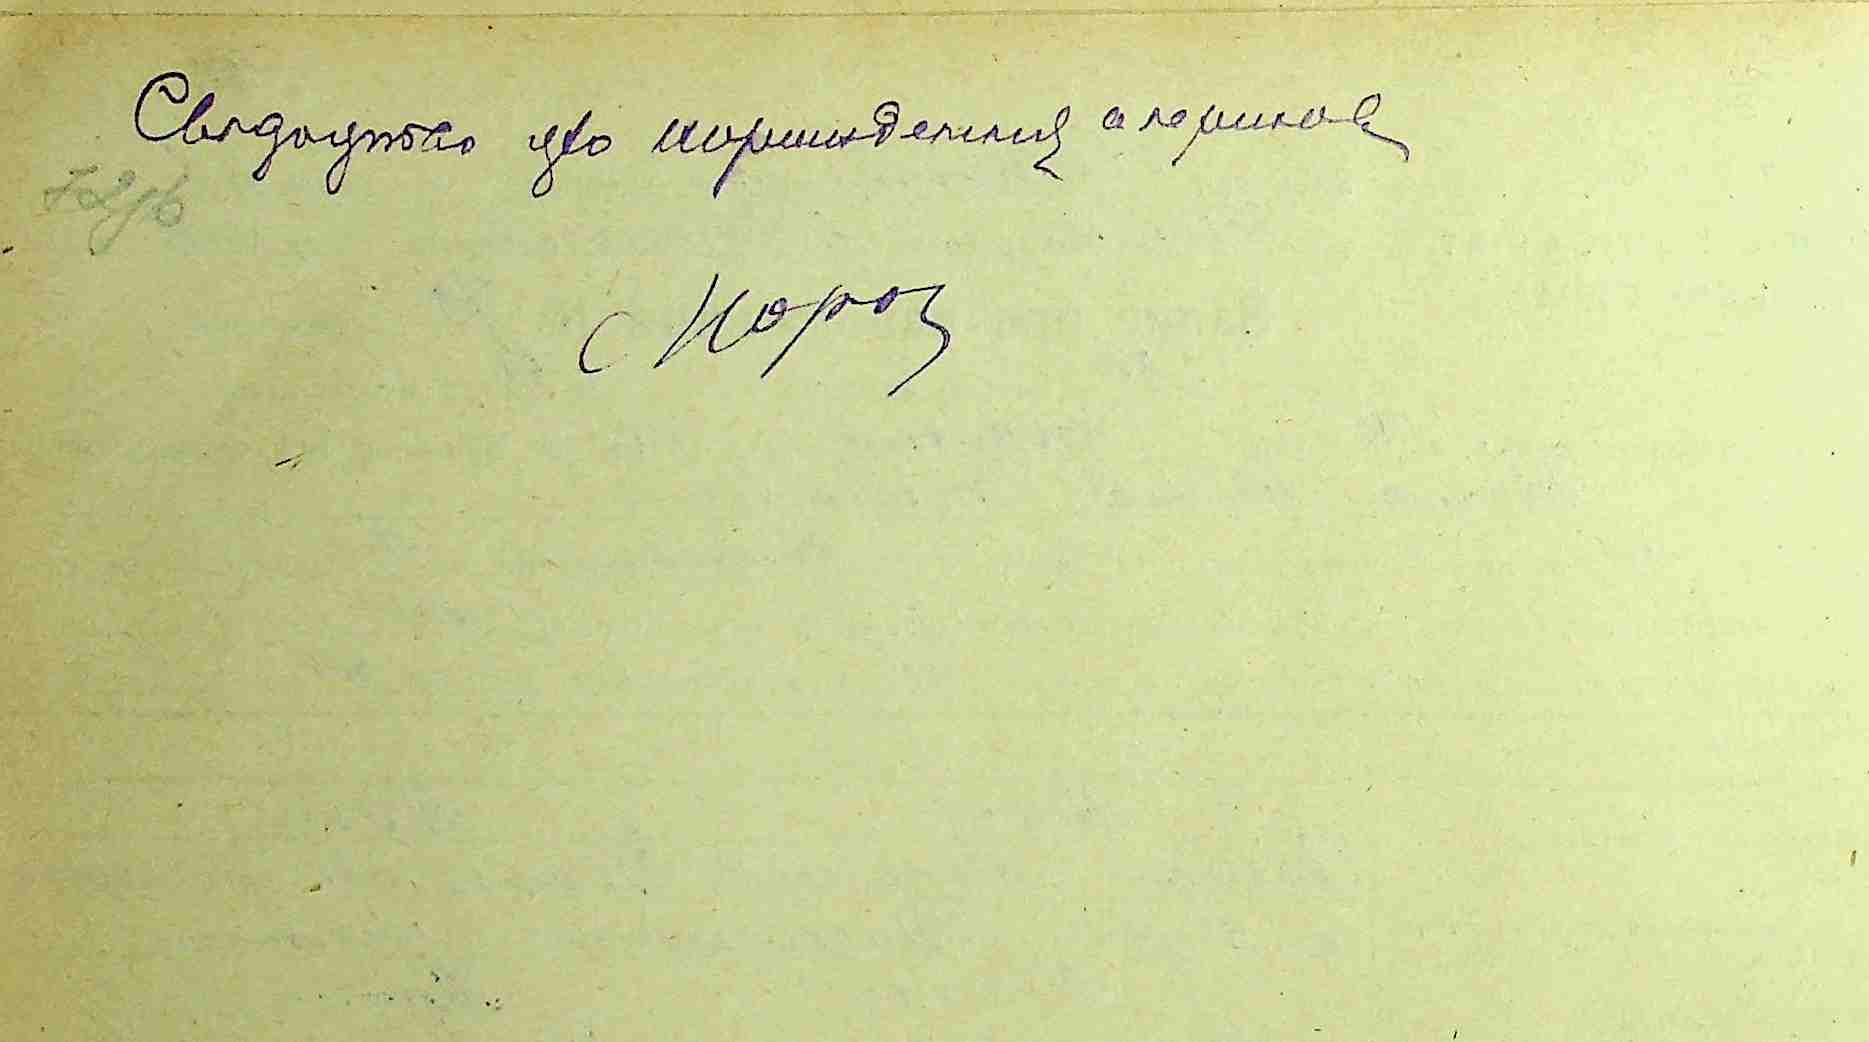 Свидоцтво про народження одержав
С Мороз